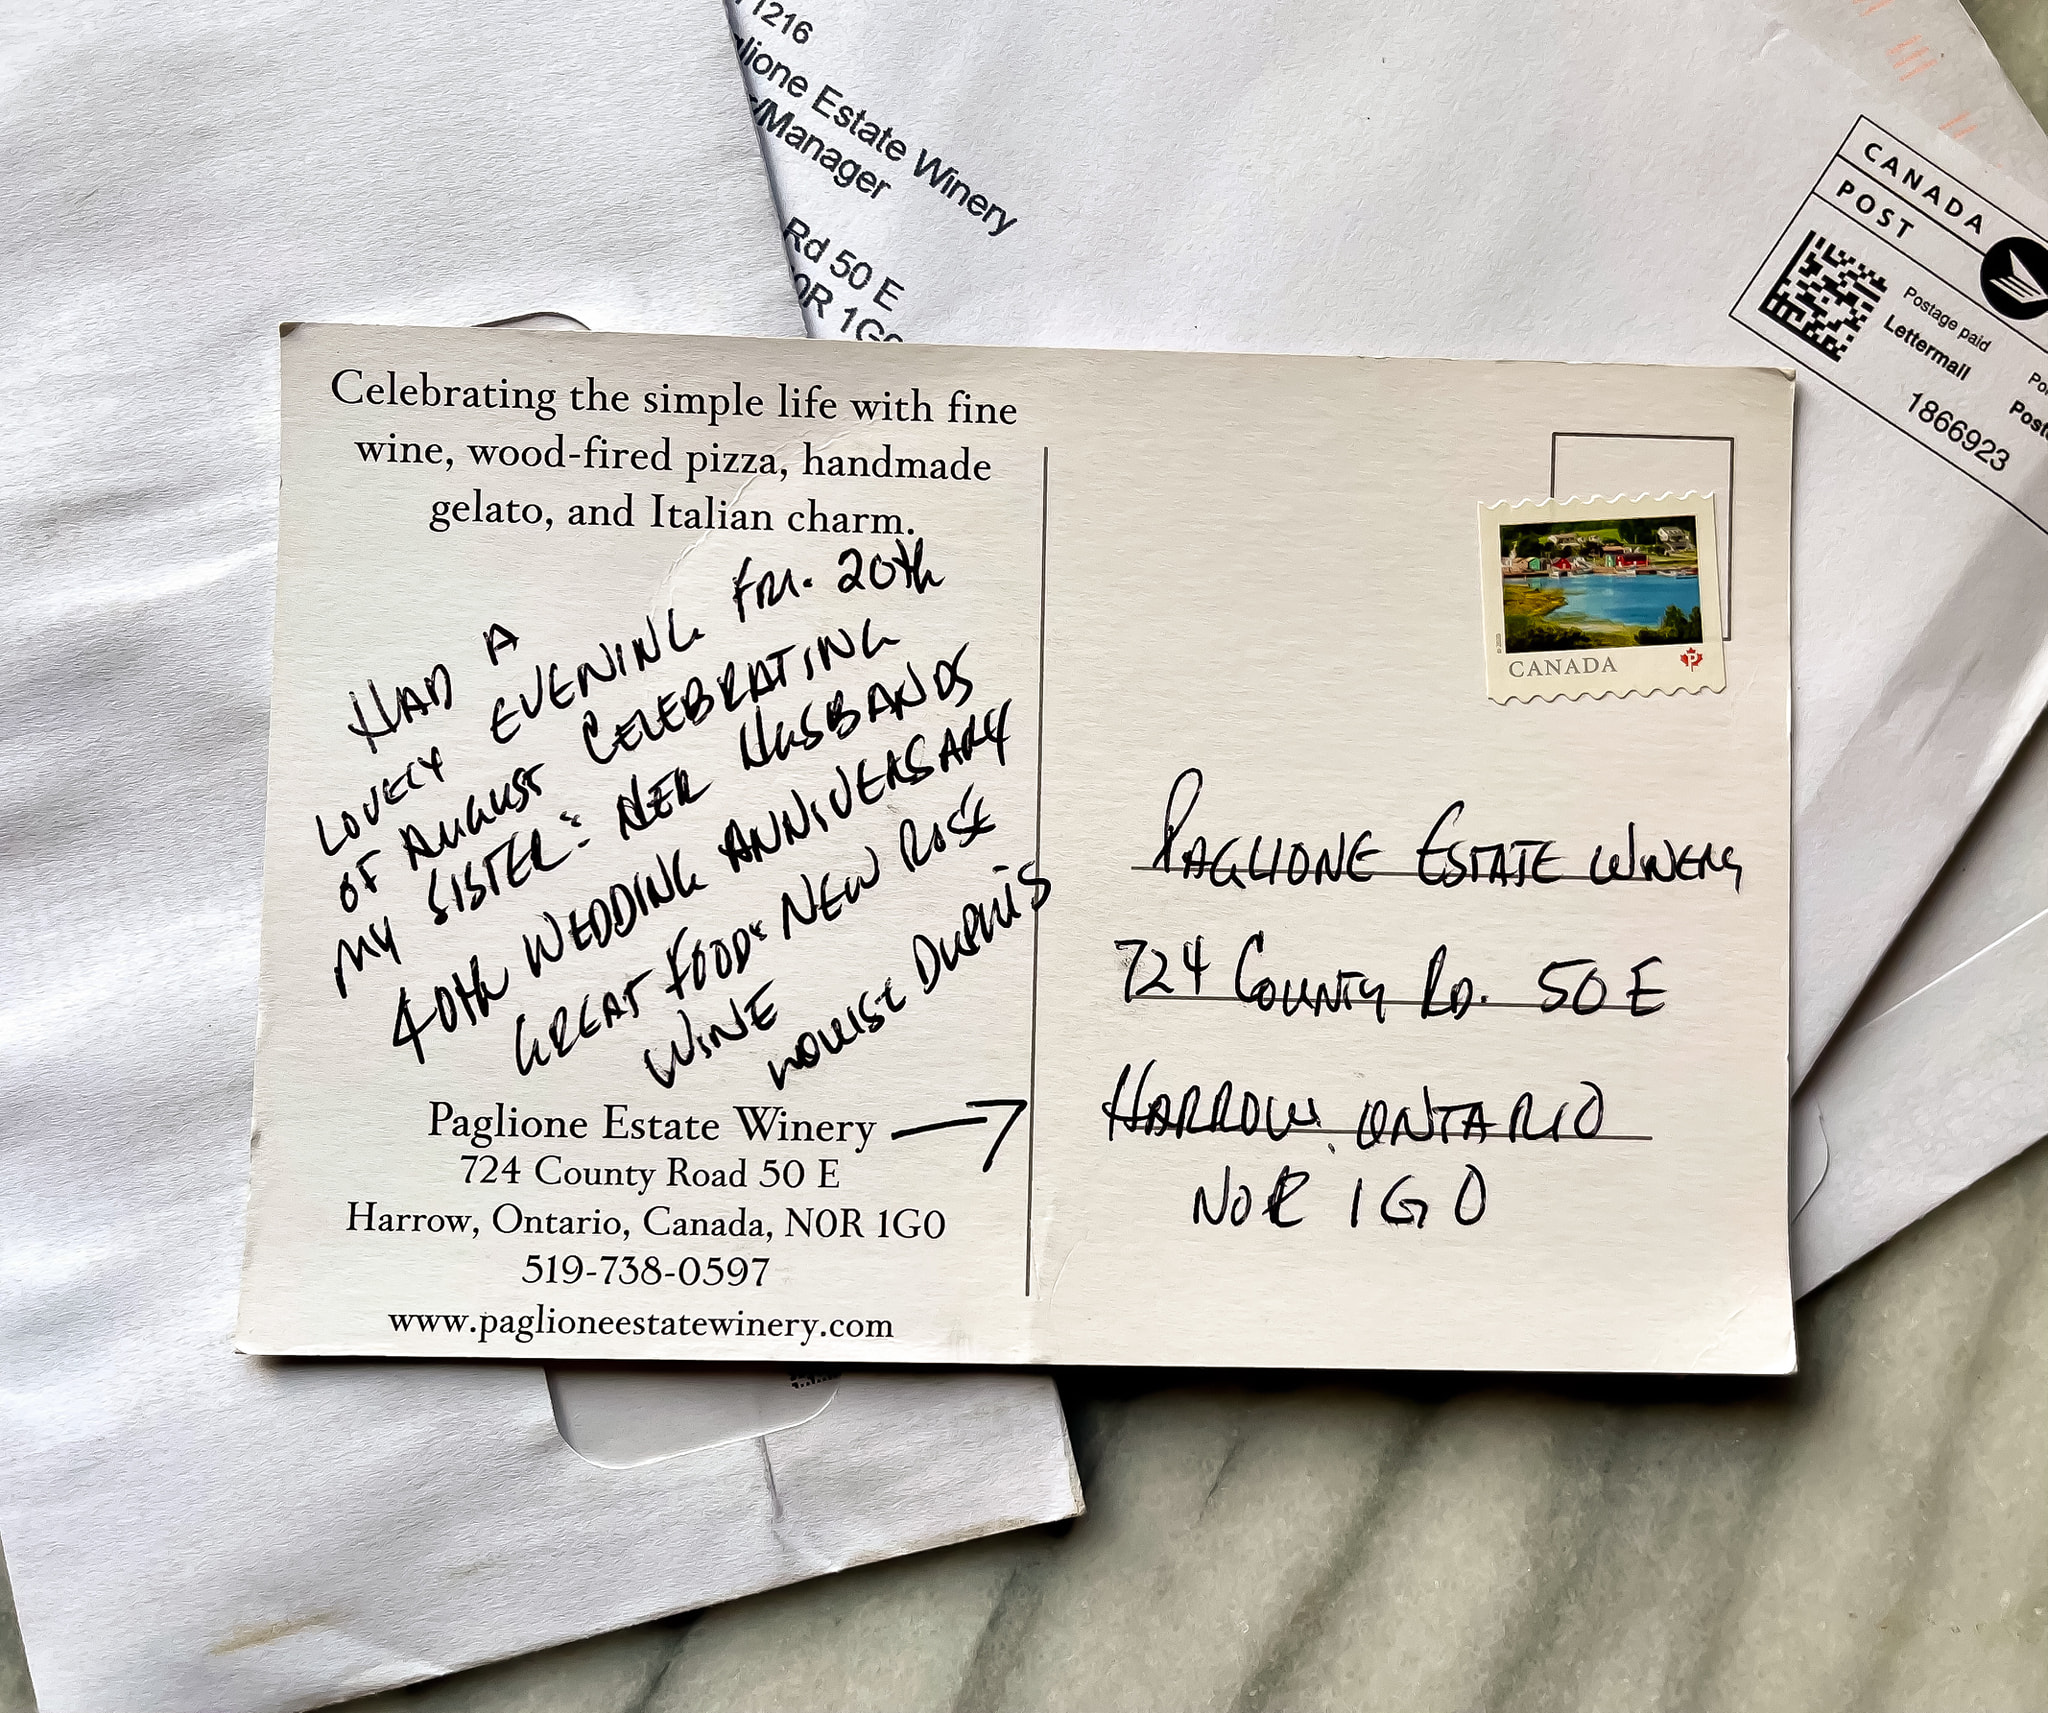 1216
lione Estate Winery
/Manager
Rd 50 E
0R 1G0
CANADA
POST
Postage paid
Lettermail
1866923
Celebrating the simple life with fine
wine, wood-fired pizza, handmade
gelato, and Italian charm.
HAD A
LOVELY EVENING FRI. 20th
OF AUGUST CELEBRATING
MY SISTER & HER HUSBANDS
40th WEDDING ANNIVERSARY
GREAT FOOD & NEW ROSÉ
WINE
LOUISE DUPUIS
Paglione Estate Winery
724 County Road 50 E
Harrow, Ontario, Canada, N0R 1G0
519-738-0597
www.paglioneestatewinery.com
CANADA
P
PAGLIONE ESTATE WINERY
724 COUNTY RD. 50 E
HARROW, ONTARIO
N0R 1G0